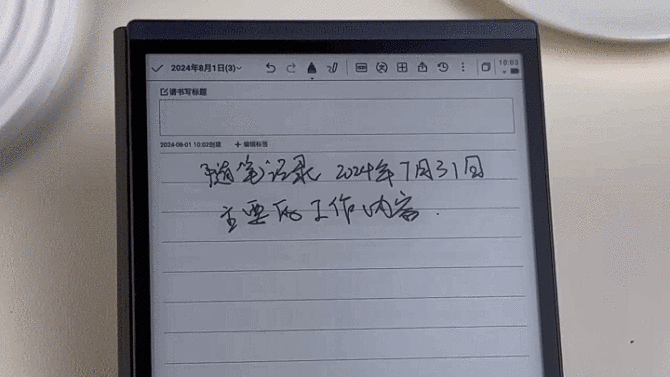 2024年8月1日(3)
10:03
请书写标题
2024-08-01 10:02创建 + 编辑标签
随笔记录 2024年7月31日
主要的工作内容.